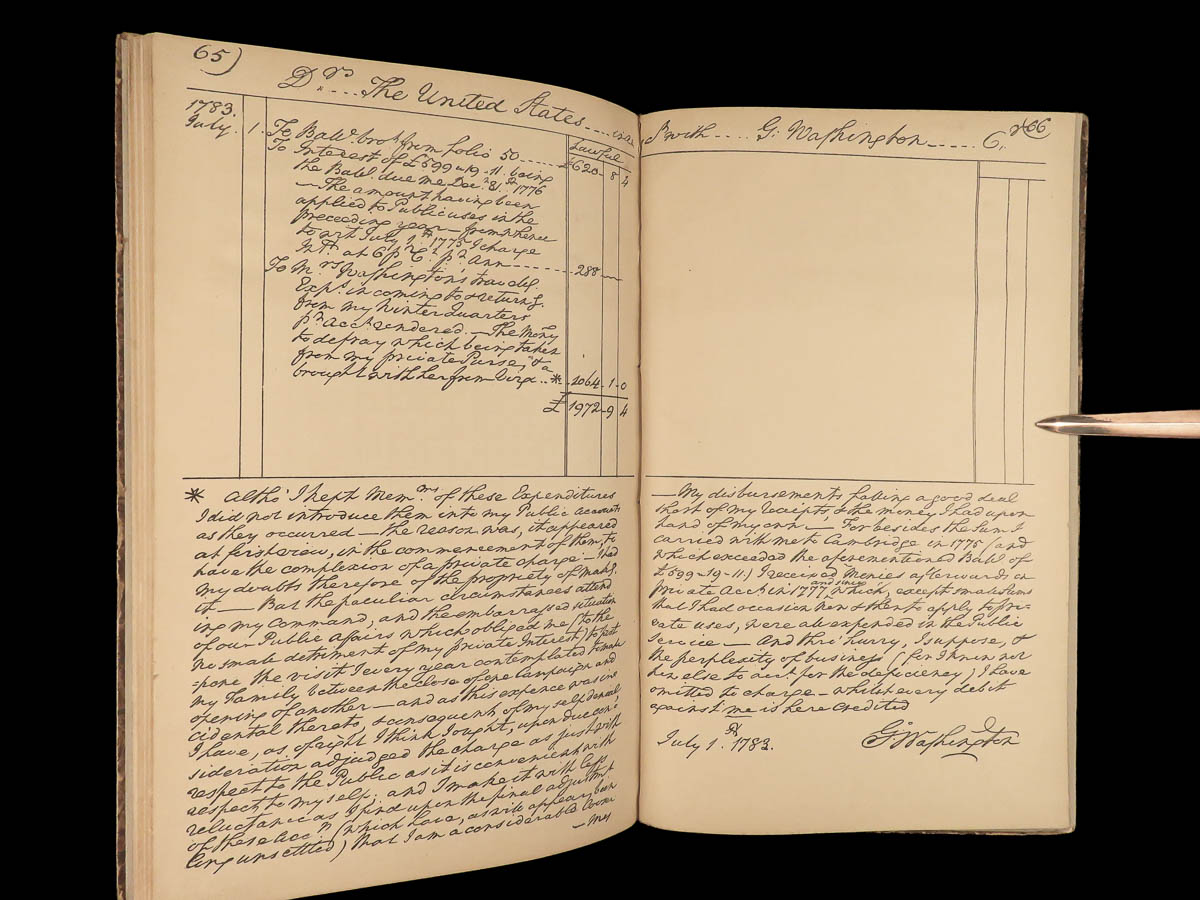 65)
Drs. .... The United States .... in
1783.
July. 1.
Lawful
To Balle. brot. from folio 50 ...... £ 620 - 8 4
To Interest of £ 599 - 19 - 11. being
the Balle. due me Decr. 31.st 1776
— The amount having been
applied to Public uses in the
preceeding year — from whence
to art July 1.st 1775 I charge
Intt. at 6 pr. Ct. pr. Ann ........ 288 —
To Mrs. Washington's travelg.
Exps. in coming to & returng.
from my Winter Quarters
pr. acct. rendered. — The Mony
to defray which being taken
from my private Purse, &
brought with her from Virga .. * 1064 . 1 . 0
£ 1972 - 9 4
* Altho' I kept Memms. of these Expenditures
I did not introduce them into my Public Accounts
as they occurred — the reason was, it appeared
at first view, in the commencement of them, to
have the complexion of a private charge — I had
my doubts therefore of the propriety of makg.
it — But the peculiar circumstances attend
ing my command, and the embarrassed situation
of our Public affairs which obliged me (to the
no small detriment of my private Interest) to post
pone the visit I every year contemplated to make
my Family between the close of one Campaign and
opening of another — and as this expence was in
cidental thereto, & consequent of my self denial,
I have, as of right I think I ought, upon due con-
sideration adjudged the charge as just with
respect to the Public as it is convenient with
respect to myself; and I make it with less
reluctance as I find upon the final adjustmt.
of these Accts. (which have, as will appear, been
long unsettled) that I am a considerable loser
— My
with .... G: Washington ..... C,
66
— My disbursements falling a good deal
short of my receipts, & the money I had upon
hand of my own — For besides the Sum I
carried with me to Cambridge in 1775 (and
which exceeded the aforementioned Balle. of
£ 599 - 19 - 11.) I received Monies afterwards on
and since
private Acct. in 1777, which, except small sums
that I had occasion now & then to apply to pri-
vate uses, were all expended in the Public
Service — And thro' hurry, I suppose, &
the perplexity of business, (for I know not
how else to acct. for the deficiency,) I have
omitted to charge — whilst every debit
against me is here credited
July 1.st 1783.
G:o Washington